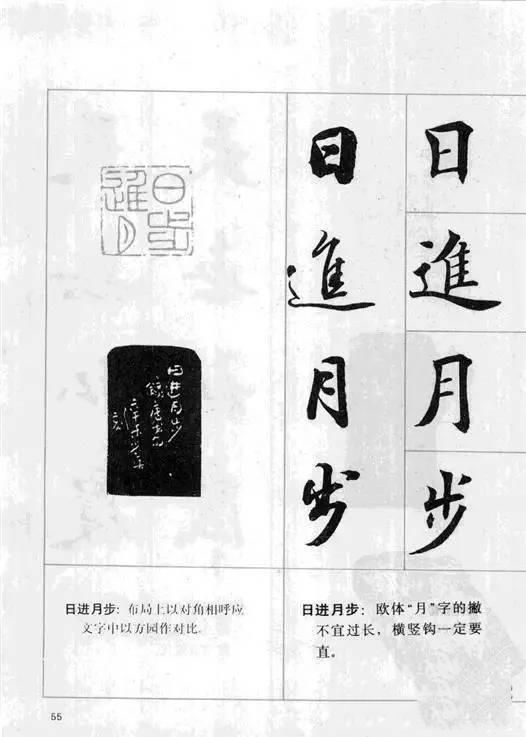 日
進
月
步
日
進
月
步
日进月步
日进月步：布局上以对角相呼应
文字中以方园作对比。
日进月步：欧体“月”字的撇
不宜过长，横竖钩一定要
直。
55